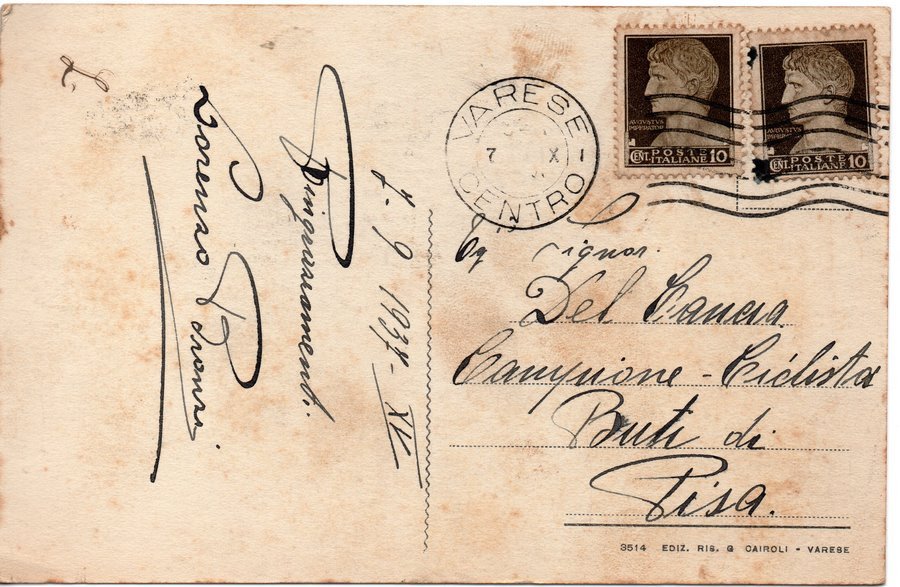 7. 9 1937 - XV
Ringraziamenti.
Lorenzo
VARESE
7 X
CENTRO
AVGVSTVS
IMPERATOR
CENT. POSTE
ITALIANE 10
AVGVSTVS
IMPERATOR
CENT. POSTE
ITALIANE 10
Eg Signor.
Del Cancia
Campione - Ciclista
Buti di
Pisa.
3514 EDIZ. RIS. G CAIROLI - VARESE